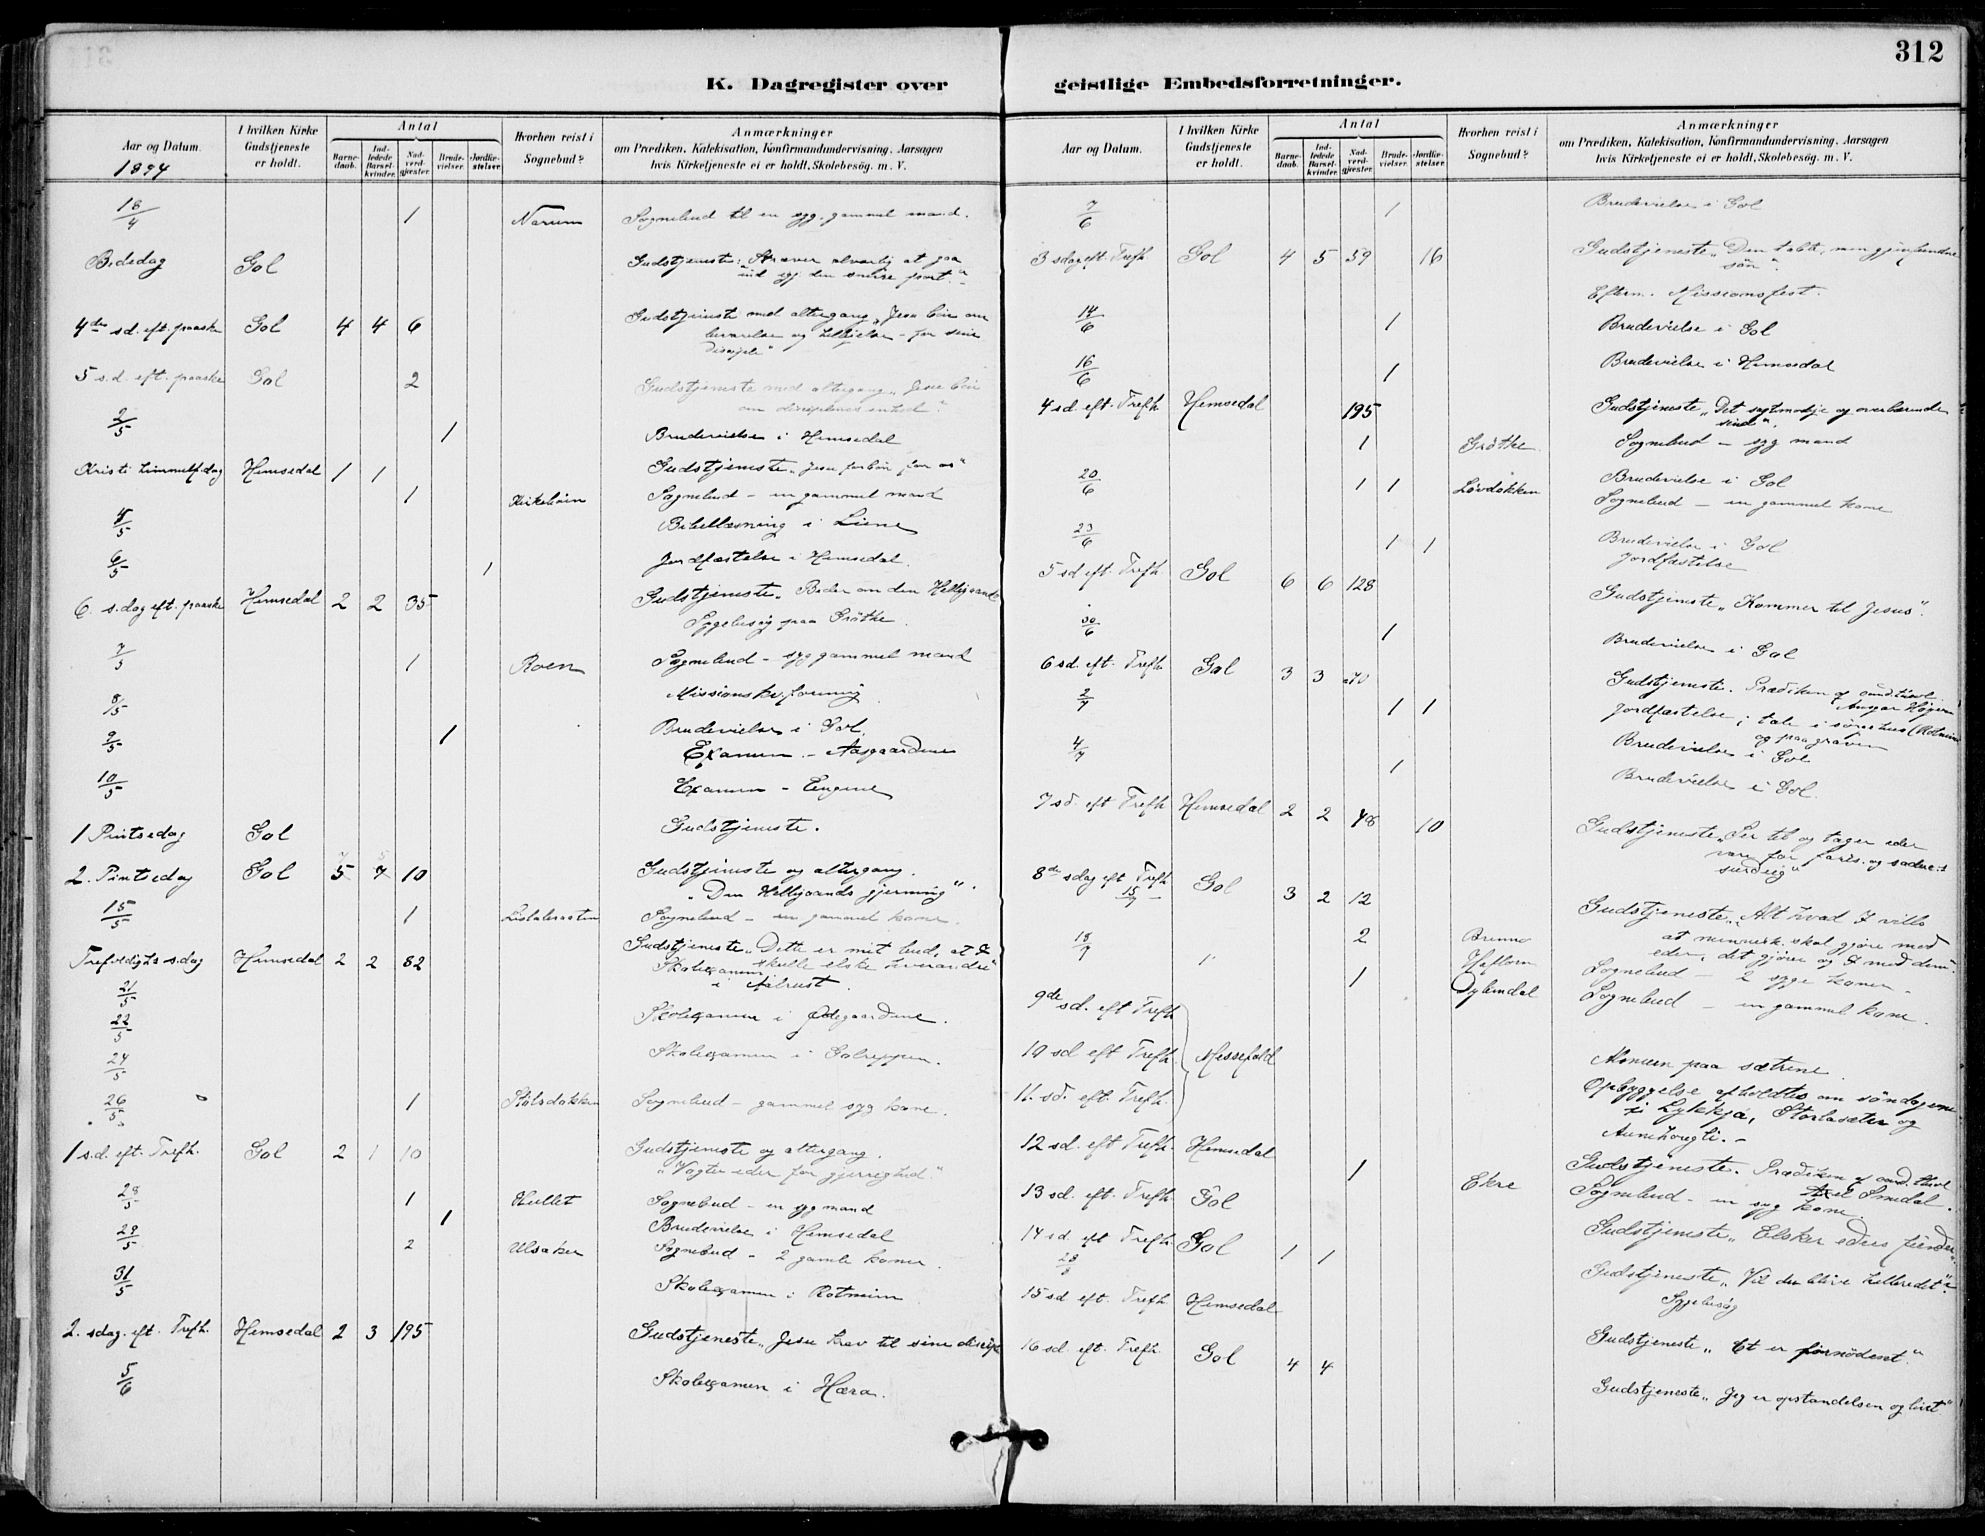 312
K. Dagregister over geistlige Embedsforretninger.
Aar og Datum. I hvilken Kirke Gudstjeneste er holdt. Antal Barnedaab. Indledede Barselkvinder. Nadverdgjæster. Brudevielser. Jordfæstelser. Hvorhen reist i Sognebud? Anmærkninger om Prædiken, Katekisation, Konfirmandundervisning, Aarsagen hvis Kirketjeneste ei er holdt, Skolebesøg. m. V.
1894
18/4 1 Narum Sognebud til en syg. gammel mand.
Bededag Gol Gudstjeneste: Stræver alvorlig at gaa
ind gj. den snevre port."
4de sd. eft. paaske Gol 4 4 6 Gudstjeneste med altergang "Jesu bøn om
bevarelse og helligelse - for sine
disciple"
5 s.d. eft. paaske Gol 2 Gudstjeneste med altergang "Jesu bøn
om disciplenes enhed".
2/5 1 Brudevielse i Hemsedal
Kristi himmelf.dag Hemsedal 1 1 Gudstjeneste "Jesu forbøn for os"
1 Kirkebøen Sognebud - en gammel mand
4/5 Bibellæsning i Liene
6/5 1 Jordfæstelse i Hemsedal.
6. s.dag eft. paaske Hemsedal 2 2 35 Gudstjeneste "Beder om den Helligaand"
Sygebesøg paa Grøthe.
7/5 1 Roen Sognebud - syg gammel mand
8/5 Missionskv.forening
9/5 1 Brudevielse i Gol.
Examen - Aasgaardene
10/5 Examen - Engene
1 Pintsedag Gol Gudstjeneste.
2. Pintsedag Gol 5 7 10 Gudstjeneste og altergang.
"Den Helligaands gjerning".
15/5 1 Sognebud - en gammel kone.
Trefoldighs s.dag Hemsedal 2 2 82 Gudstjeneste "Dette er mit bud, at I
skulle elske hverandre"
21/5 Skolexamen i Aalrust.
22/5 Skolexamen i Ødegaardene.
24/5 Skolexamen i Golreppen.
26/5 1 Stølsdokken Sognebud - gammel syg kone.
1 s.d. eft. Trefh. Gol 2 1 10 Gudstjeneste og altergang.
"Vogter eder for gjerrighed."
28/5 1 Hullet Sognebud - en syg mand
29/5 1 Brudevielse i Hemsedal
2 Ulsaker Sognebud - 2 gamle koner.
31/5 Skolexamen i Rotneim
2. sdag. eft. Trefh. Hemsedal 2 3 195 Gudstjeneste "Jesu krav til sine discipl
5/6 Skolexamen i Hæra.
Aar og Datum. I hvilken Kirke Gudstjeneste er holdt. Antal Barnedaab. Indledede Barselkvinder. Nadverdgjæster. Brudevielser. Jordfæstelser. Hvorhen reist i Sognebud? Anmærkninger om Prædiken, Katekisation, Konfirmandundervisning, Aarsagen hvis Kirketjeneste ei er holdt, Skolebesøg. m. V.
7/6 1 Brudevielse i Gol
3 sdag eft. Trefh Gol 4 5 59 16 Gudstjeneste "Den tabte, men gjenfundne
søn".
Efterm. Missionsfest.
14/6 1 Brudevielse i Gol
16/6 1 Brudevielse i Hemsedal
4 sd. eft. Trefh Hemsedal 195 Gudstjeneste "Det sagtmodige og overbærende
sind".
1 Grøthe Sognebud - syg mand
20/6 1 1 Løvdokken Brudevielse i Gol
Sognebud - en gammel kone
23/6 1 1 Brudevielse i Gol
Jordfæstelse
5 sd eft. Trefh. Gol 6 6 128 Gudstjeneste "Kommer til Jesus".
30/6 1 Brudevielse i Gol
6 sd. eft. Trefh Gol 3 3 Gudstjeneste. Prædiken af cand. theol.
Ansgar Høyer
2/7 1 1 Jordfæstelse; tale i sørgehus (Rotneim
og paa graven
Brudevielse i Gol
4/7 1 Brudevielse i Gol.
7 sd. eft Trefh Hemsedal 2 2 48 10 Gudstjeneste "Ser til og tager eder
vare for faris. og saduc.s
surdeig"
8de sdag eft Trefh Gol 3 2 12 Gudstjeneste "Alt hvad I ville
15/7
at mennesk. skal gjøre mod
eder, det gjører og I mod dem"
18/7 2 Brenno Sognebud - 2 syge koner.
Heftorn
1 Gylendal Sognebud - en gammel kone.
9de sd. eft Trefh
10 sd eft Trefh. Messefald Manuen paa sætrene.
11. sd. eft. Trefh. Opbyggelse afholdtes om søndagene
i Lykkja, Storlasæter og
Aunehougli. -
12 sd. eft Trefh. Hemsedal Gudstjeneste. Prædiken af cand. theol
Axel Smedal.
1 Ekre Sognebud - en syg kone.
13 sd. eft. Trefh. Gol Gudstjeneste "Elsker eders fiender"
14 sd eft Trefh. Gol 1 1 Gudstjeneste "Vil du blive helbredet"?
28/8 Sygebesøg
15 sd eft. Trefh. Hemsedal Gudstjeneste "Et er fornødent."
16 sd. eft. Trefh. Gol 4 4 Gudstjeneste "Jeg er opstandelsen og livet"